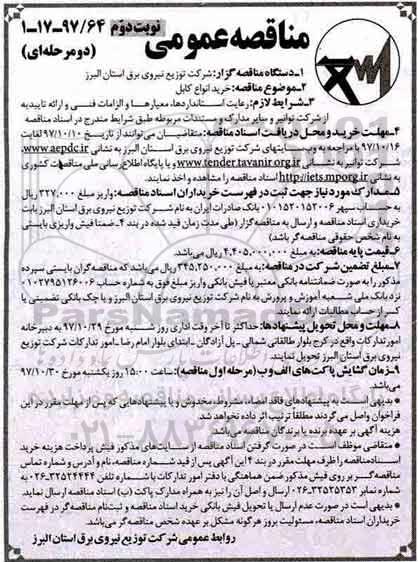 نوبت دوم ۱-۱۷-۹۷/۶۴
مناقصه عمومی (دو مرحله‌ای)
۱-دستگاه مناقصه گزار: شرکت توزیع نیروی برق استان البرز
۲-موضوع مناقصه: خرید انواع کابل
۳-شرایط لازم: رعایت استانداردها، معیارها و الزامات فنی و ارائه تاییدیه
از شرکت توانیر و سایر مدارک و مستندات مربوطه طبق شرایط مندرج در اسناد مناقصه
۴-مهلت خرید و محل دریافت اسناد مناقصه: متقاضیان می‌توانند از تاریخ ۹۷/۱۰/۱۰ لغایت
۹۷/۱۰/۱۶ با مراجعه به وب سایتهای شرکت توزیع نیروی برق استان البرز به نشانی www.aepdc.ir،
شرکت توانیر به نشانی www.tender.tavanir.org.ir و یا پایگاه اطلاع رسانی ملی مناقصات کشوری
به نشانی http://iets.mporg.ir اسناد مناقصه را مشاهده و اخذ نمایند.
۵-مدارک مورد نیاز جهت ثبت در فهرست خریداران اسناد مناقصه: واریز مبلغ ۳۲۷,۰۰۰ ریال
به حساب سپهر ۰۱۰۱۵۲۰۱۵۳۰۰۶ بانک صادرات ایران به نام شرکت توزیع نیروی برق استان البرز بابت
خریداری اسناد مناقصه و ارسال به مناقصه گزار (طی مدت زمان قید شده در بند ۴-ضمنا فیش واریزی بایستی
به نام شخص حقوقی مناقصه گر باشد)
۶-قیمت پایه مناقصه: به مبلغ ۴,۴۰۵,۰۰۰,۰۰۰ ریال می‌باشد.
۷-مبلغ تضمین شرکت در مناقصه: به مبلغ ۳۴۵,۲۵۰,۰۰۰ ریال می‌باشد که مناقصه گران بایستی سپرده
مذکور را به صورت ضمانتنامه بانکی معتبر یا فیش بانکی واریز مبلغ فوق به شماره حساب ۰۱۰۲۷۹۵۱۲۶۰۰۶
نزد بانک ملی شعبه آموزش و پرورش به نام شرکت توزیع نیروی برق استان البرز و یا چک بانکی تضمینی یا
کسر از حساب مطالبات ارائه نمایند.
۸-مهلت و محل تحویل پیشنهادها: حداکثر تا آخر وقت اداری روز شنبه مورخ ۹۷/۱۰/۲۹ به دبیرخانه
امور تدارکات واقع در کرج بلوار طالقانی شمالی - پل آزادگان - ابتدای بلوار امام رضا - امور تدارکات شرکت توزیع
نیروی برق استان البرز تحویل نمایند.
۹-زمان گشایش پاکت‌های الف و ب (مرحله اول مناقصه): ساعت ۱۵:۰۰ روز یکشنبه مورخ ۹۷/۱۰/۳۰
• بدیهی است به پیشنهادهای فاقد امضاء، مشروط، مخدوش و یا پیشنهادهایی که پس از مهلت مقرر در این
فراخوان واصل می‌گردند مطلقا ترتیب اثر داده نخواهد شد.
هزینه آگهی بر عهده برنده یا برندگان مناقصه می‌باشد.
• متقاضی موظف است در صورت گرفتن اسناد مناقصه از سایت‌های مذکور فیش پرداخت هزینه خرید
اسناد مناقصه را ظرف مهلت مقرر در بند ۴ این آگهی پس از قید شماره مناقصه، نام و آدرس و شماره تماس
مناقصه گر بر روی فیش مذکور ضمن هماهنگی با دفتر امور تدارکات با شماره تلفن ۳۲۵۲۴۴۴۴-۰۲۶ به
شماره نمابر ۳۲۵۲۵۳۵۲-۰۲۶ ارسال و اصل آن را نیز به همراه مدارک پاکت (ب) اسناد مناقصه ارسال نمایند.
• بدیهی است در صورت عدم ارسال یا تحویل فیش بانکی خرید اسناد مناقصه و ثبت نام مناقصه گر در فهرست
خریداران اسناد مناقصه، مسئولیت بروز هرگونه مشکل بر عهده شخص مناقصه گر می‌باشد.
روابط عمومی شرکت توزیع نیروی برق استان البرز